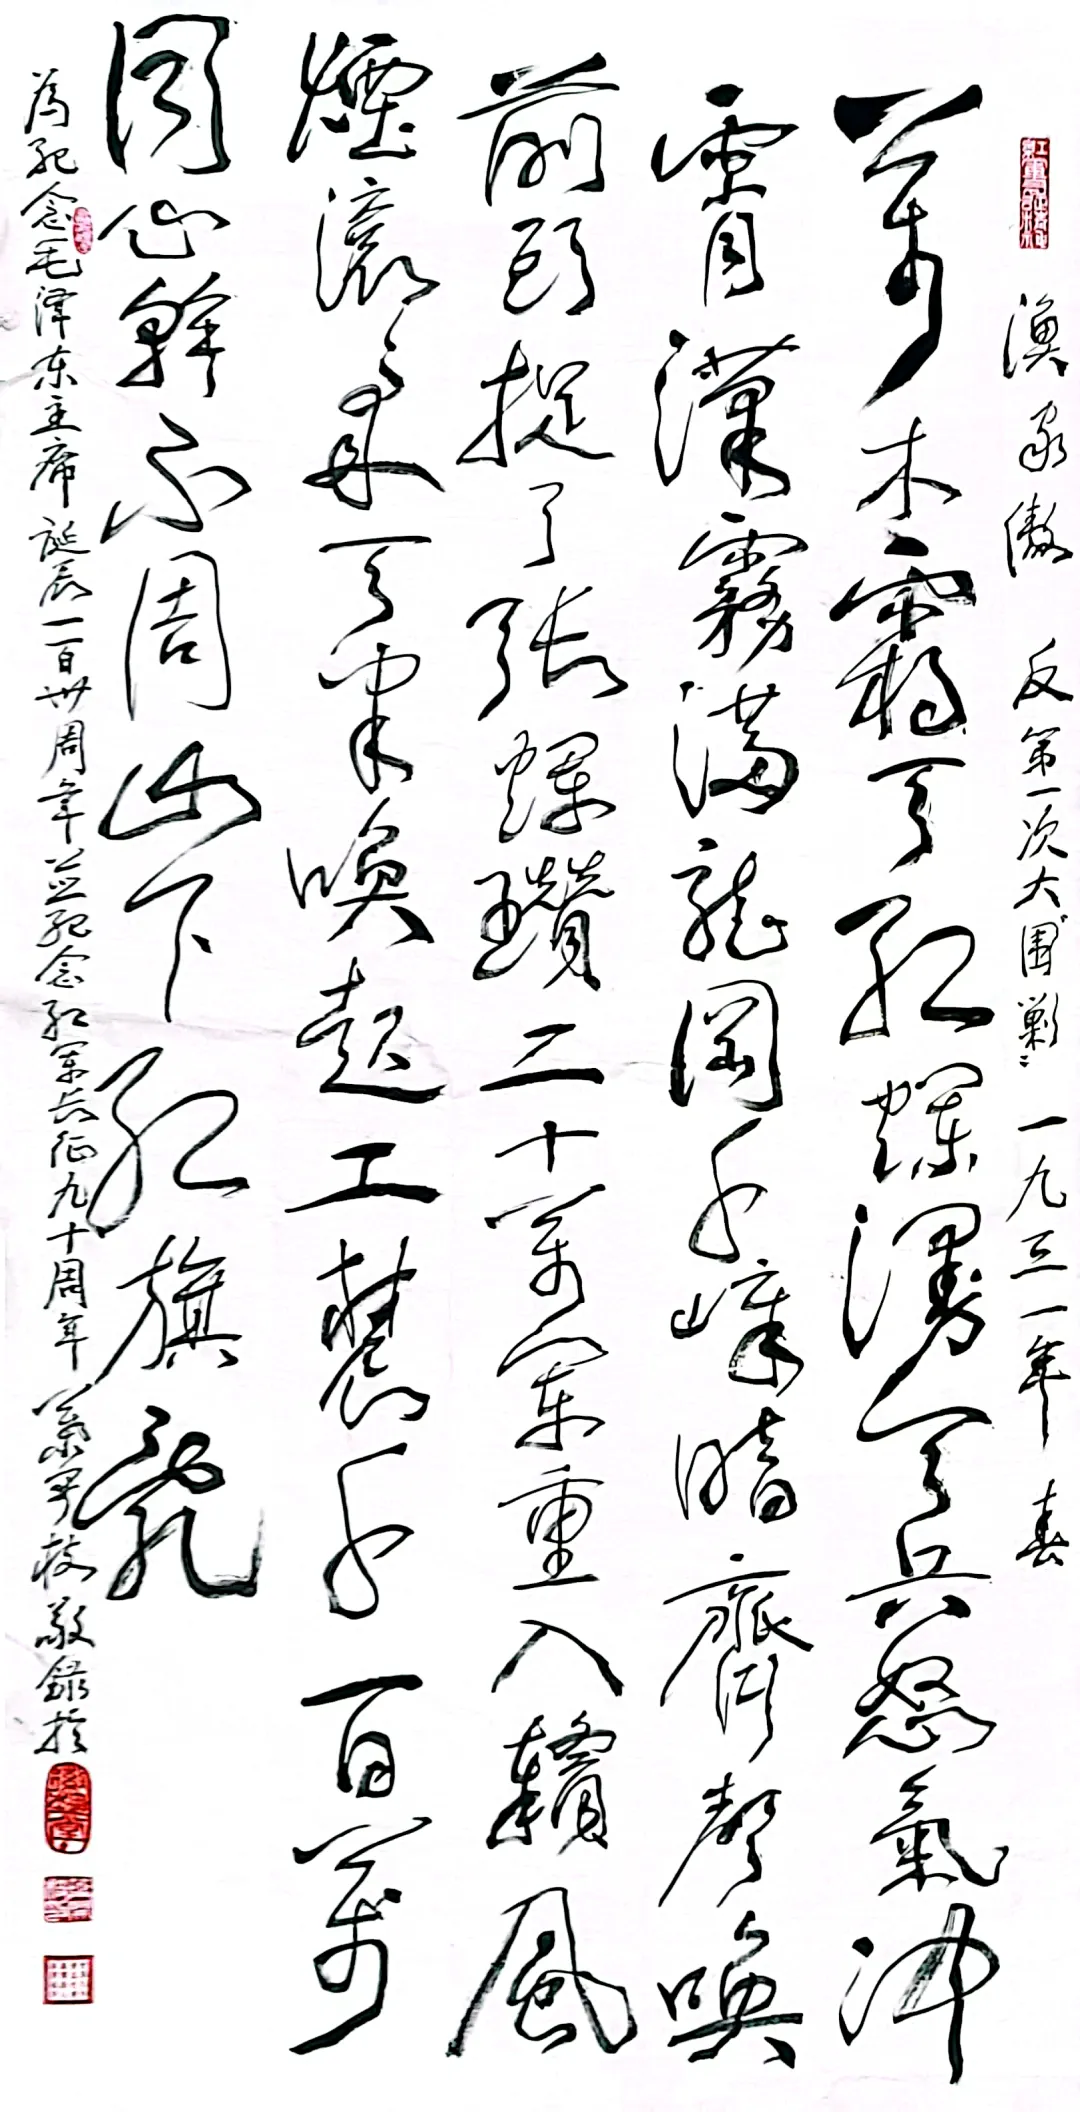 漁家傲 反第一次大"圍剿" 一九三一年春
萬木霜天红爛漫天兵怒氣沖
霄漢霧滿龍岡千嶂暗齊聲唤
前頭捉了張輝瓚二十萬軍重入贛風
煙滚滚来天半唤起工農千百萬
同心幹不周山下红旗亂
為紀念毛泽东主席诞辰一百卅周年並紀念红軍长征九十周年 敬錄於